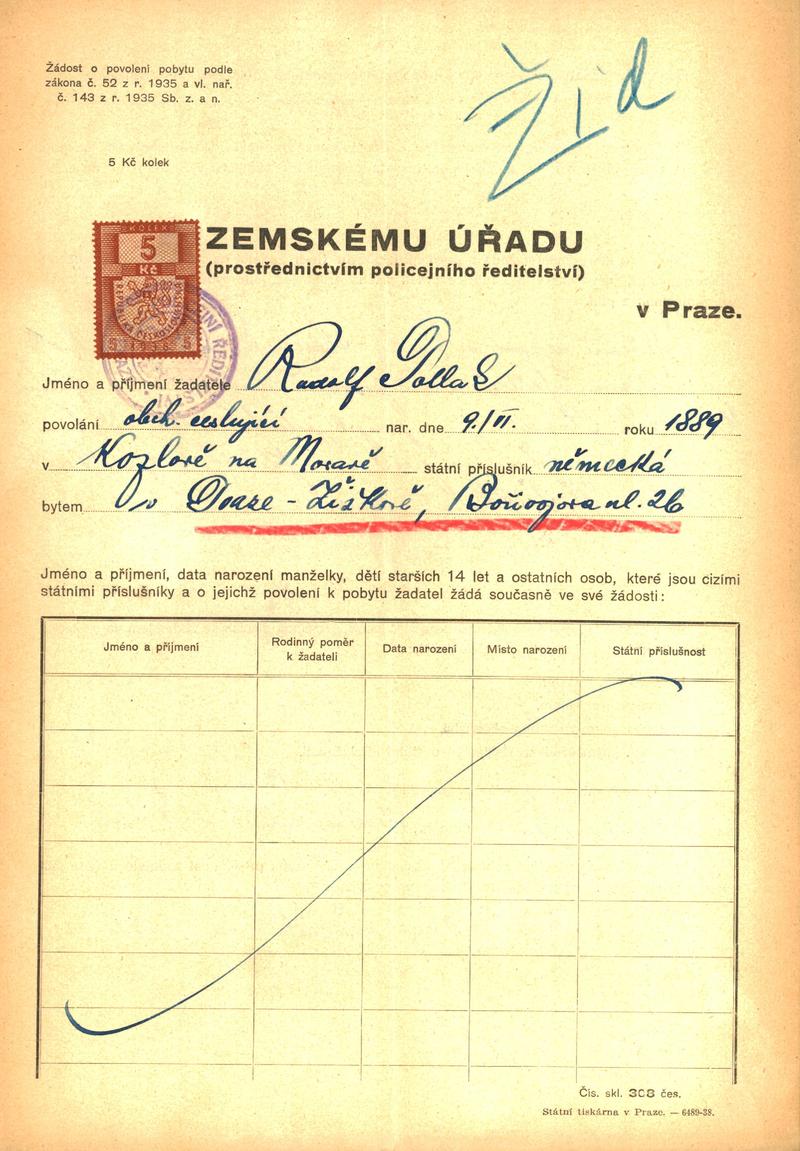 Žádost o povolení pobytu podle
zákona č. 52 z r. 1935 a vl. nař.
č. 143 z r. 1935 Sb. z. a n.
Žid
5 Kč kolek
KOLEK
5
Kč
ZEMSKÉMU ÚŘADU
(prostřednictvím policejního ředitelství)
v Praze.
Jméno a příjmení žadatele Rudolf Pollak
povolání obch. cestující nar. dne 9./VI. roku 1889
v Kozlově na Moravě státní příslušník německá
bytem v Praze - Žižkově, ul. 26
Jméno a příjmení, data narození manželky, dětí starších 14 let a ostatních osob, které jsou cizími
státními příslušníky a o jejichž povolení k pobytu žadatel žádá současně ve své žádosti:
Jméno a příjmení
Rodinný poměr
k žadateli
Data narození
Místo narození
Státní příslušnost
Čís. skl. 308 čes.
Státní tiskárna v Praze. — 6489-38.